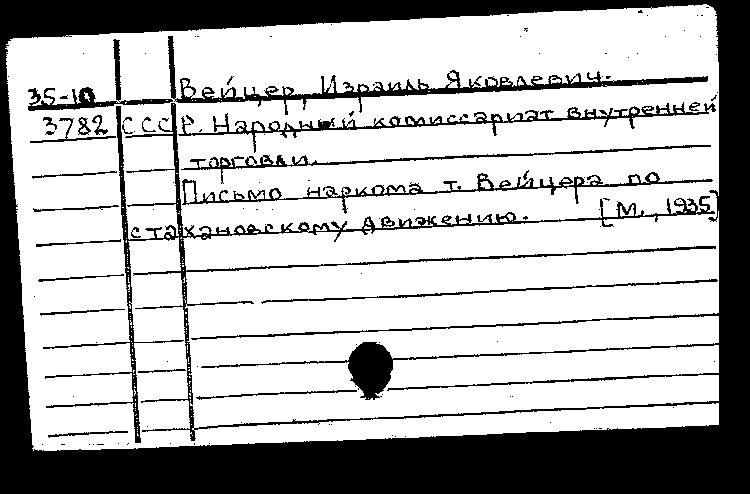 35-10 Вейцер, Израиль Яковлевич.
3782 СССР. Народный комиссариат внутренней
торговли.
Письмо наркома т. Вейцера по
стахановскому движению. [М., 1935]